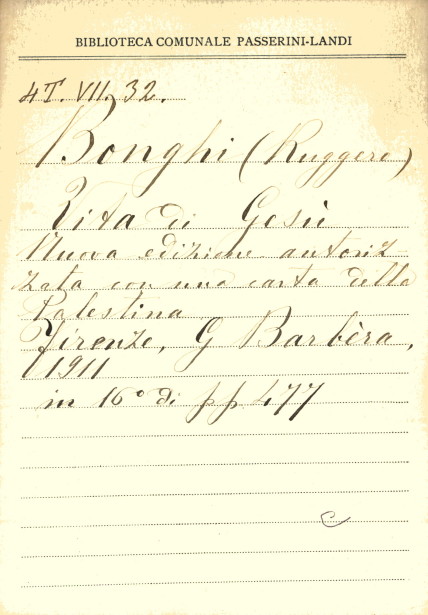 BIBLIOTECA COMUNALE PASSERINI-LANDI
4T. VII. 32.
Bonghi (Ruggero)
Vita di Gesù
Nuova edizione autoriz
zata con una carta della
Palestina
Firenze, G Barbèra,
1911
in 16° di pp 477